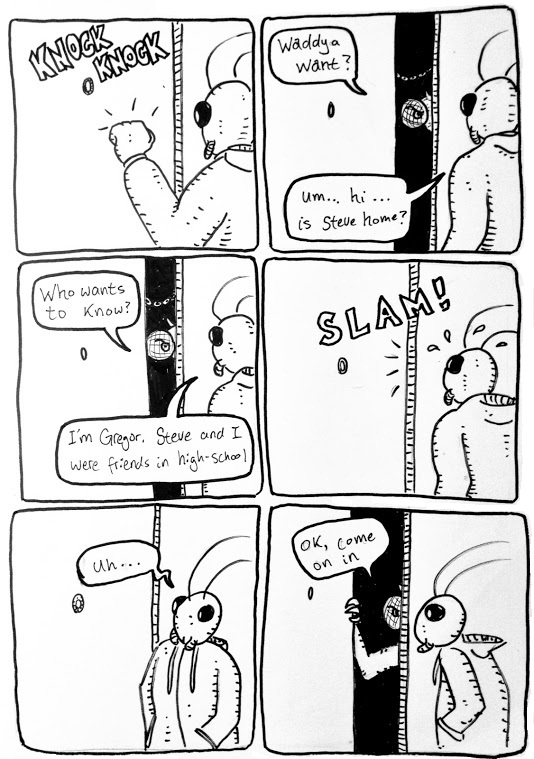 KNOCK
KNOCK
Waddya
want?
um... hi...
is Steve home?
Who wants
to know?
I'm Gregor. Steve and I
were friends in high-school
SLAM!
uh...
OK, come
on in